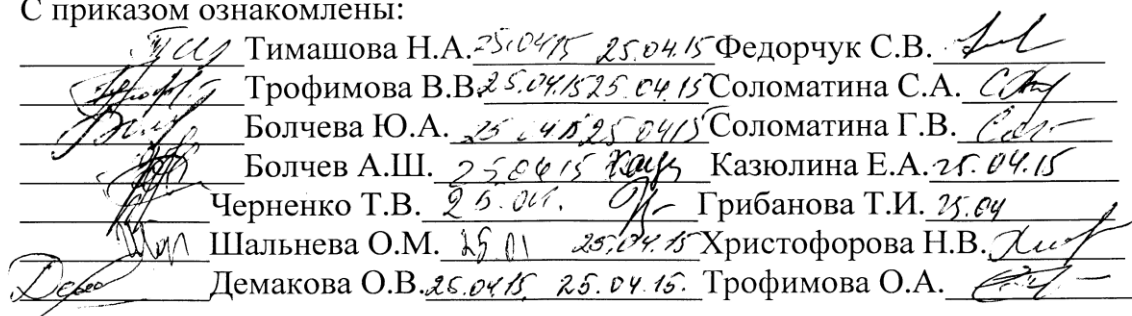 С приказом ознакомлены:
Тимашова Н.А. 25.0415 25.04.15 Федорчук С.В.
Трофимова В.В. 25.04.15 25.04.15 Соломатина С.А.
Болчева Ю.А. 25 0415 25 0415 Соломатина Г.В.
Болчев А.Ш. 250415 Казюлина Е.А. 25.04.15
Черненко Т.В. 25.04. Грибанова Т.И. 25.04
Шальнева О.М. 25.04.15 Христофорова Н.В.
Демакова О.В. 25.04.15 25.04.15. Трофимова О.А.